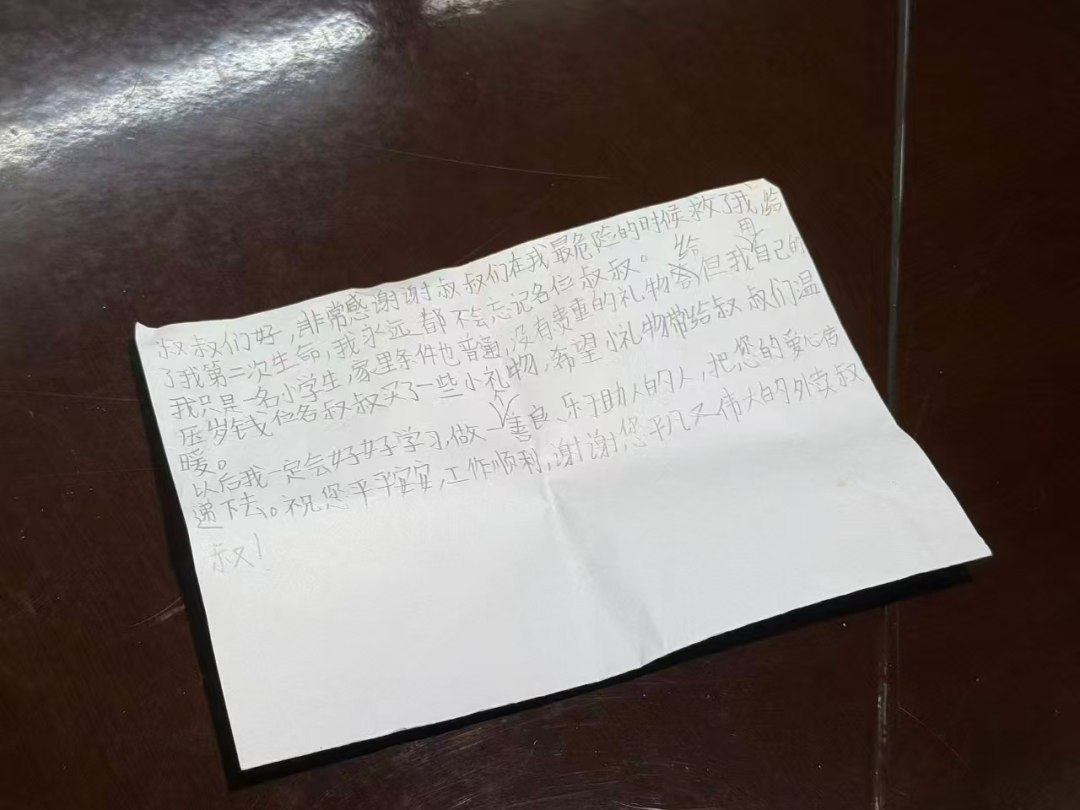 叔叔们好，非常感谢谢叔叔们在我最危险的时候救了我，给
了我第二次生命，我永远都不会忘记各位叔叔。
我只是一名小学生，家里条件也普通，没有贵重的礼物给但我用自己的
压岁钱位各叔叔买了一些小礼物，希望小礼物带给叔叔们温
暖。
以后我一定会好好学习，做一善良、乐于助人的人，把您的爱心传
递下去。祝您平平安安，工作顺利，谢谢您平凡又伟大的外卖叔
叔！